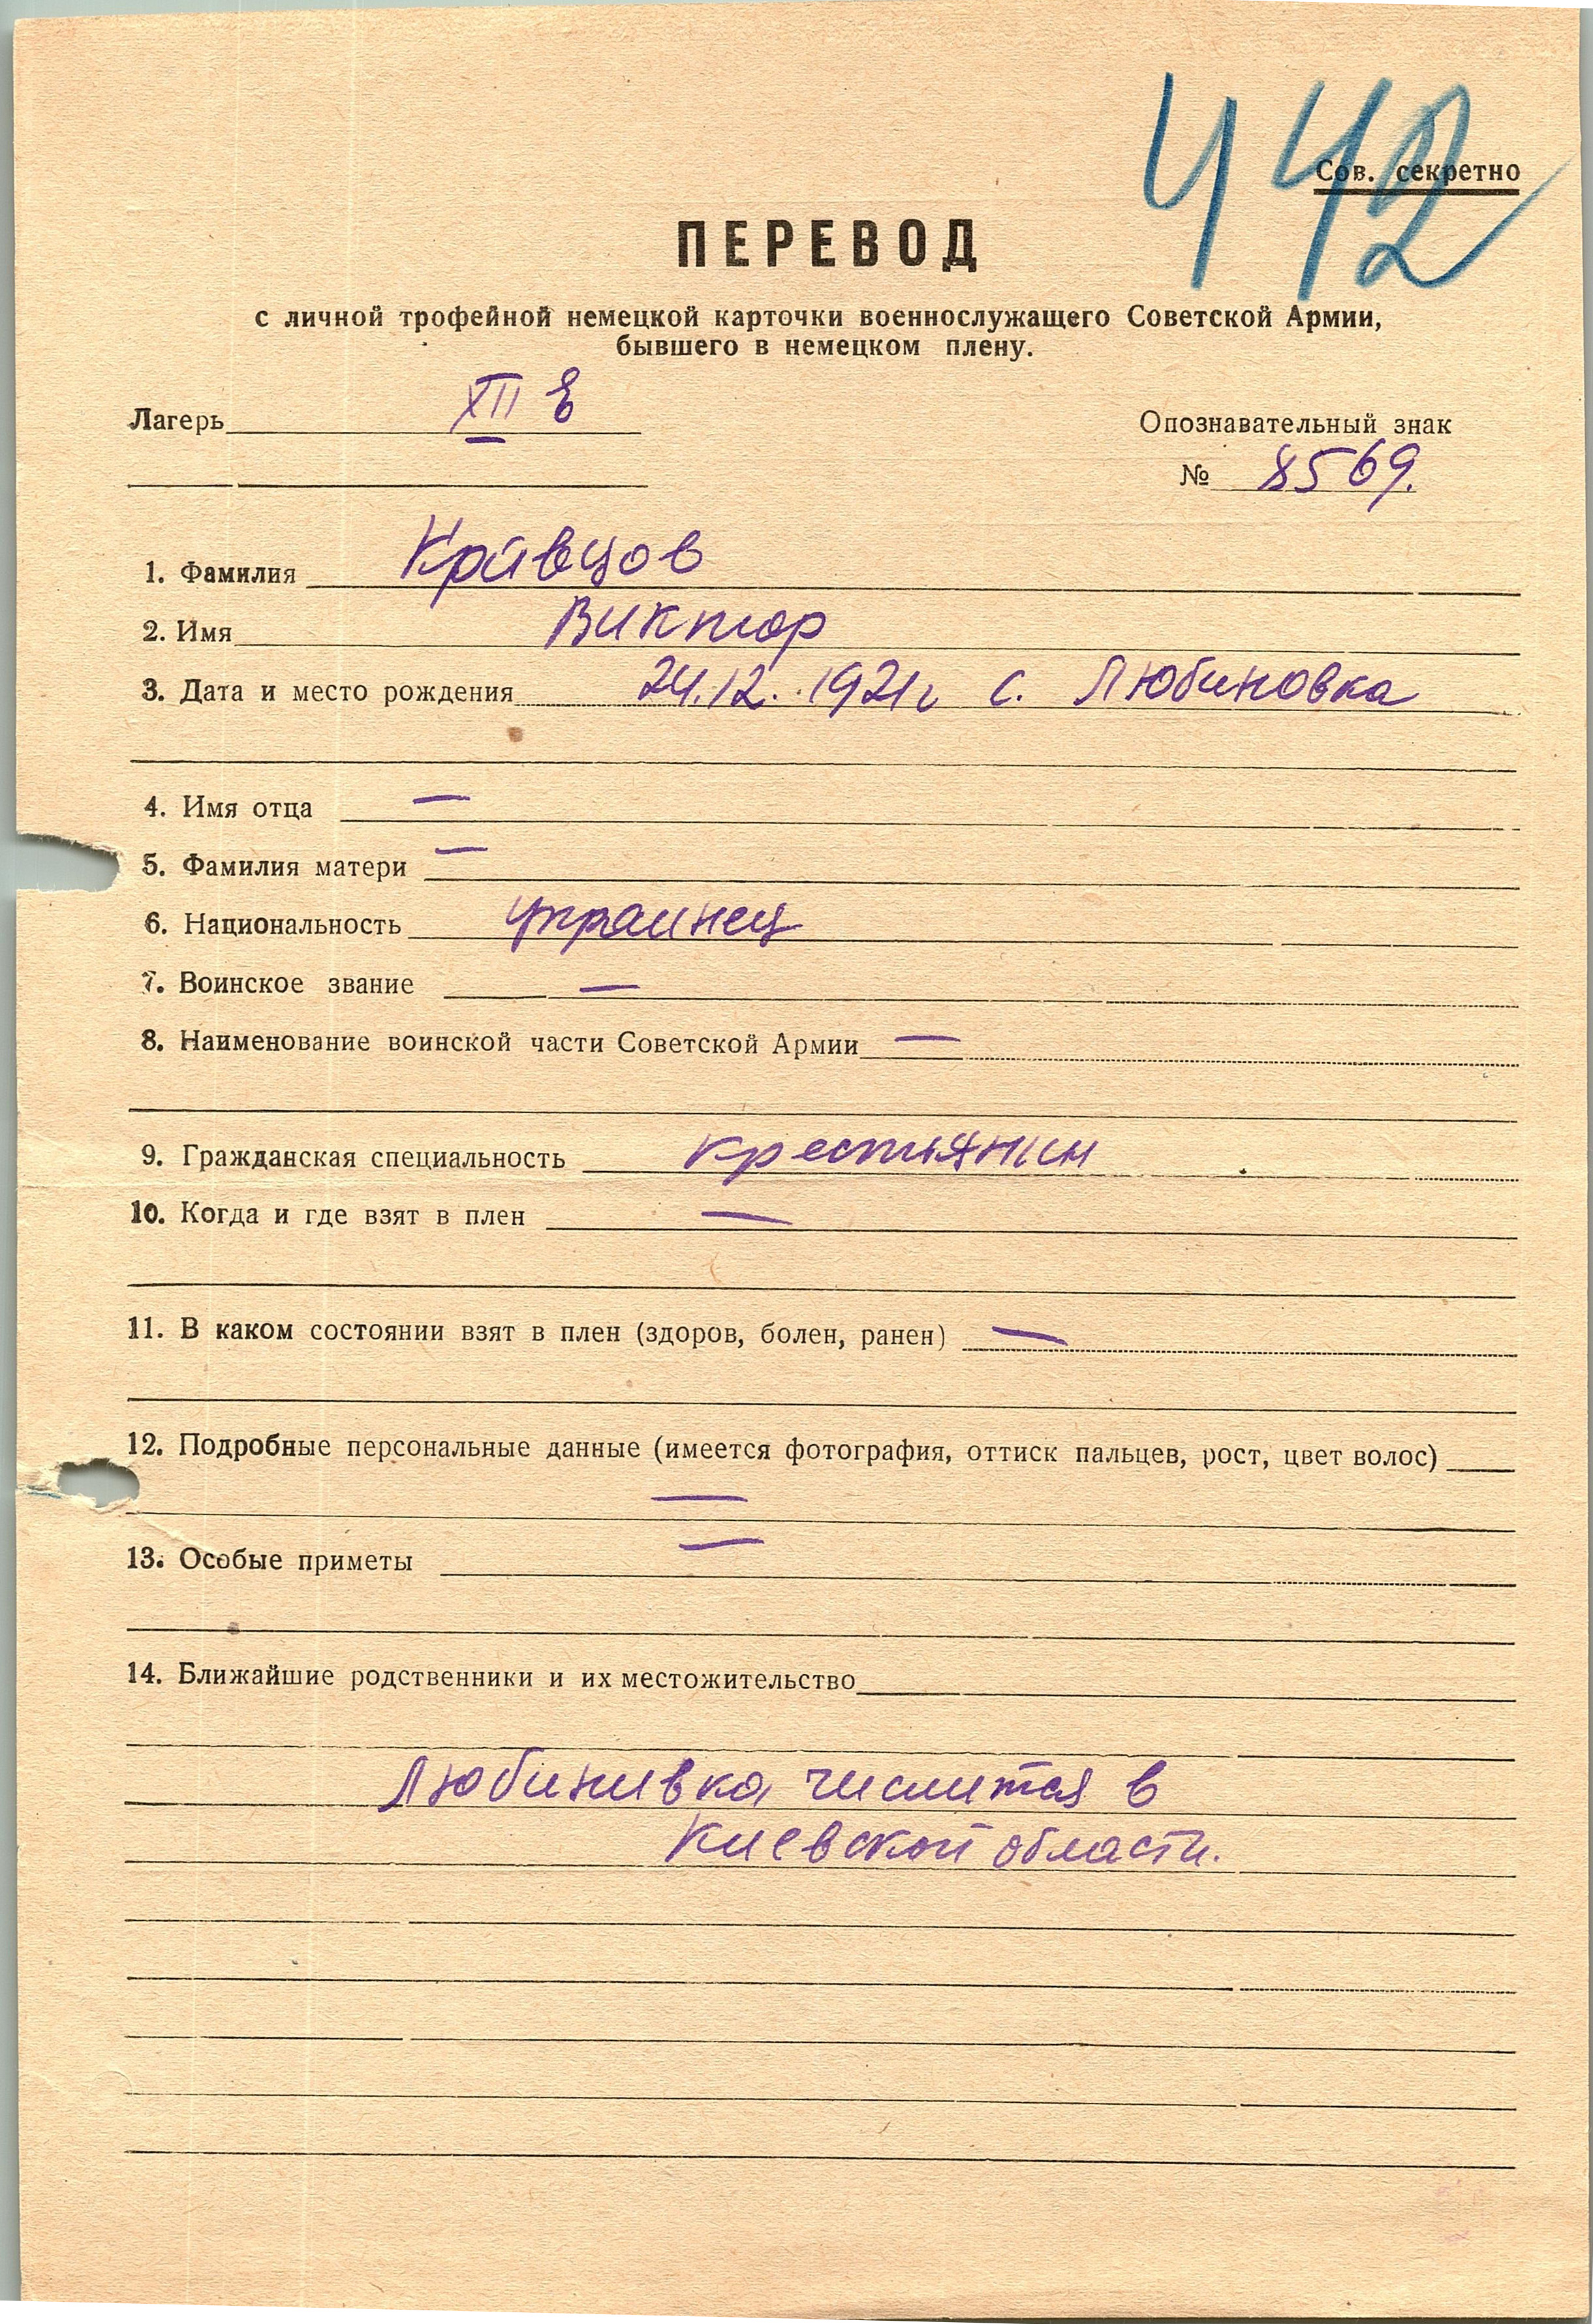 442
Сов. секретно
ПЕРЕВОД
с личной трофейной немецкой карточки военнослужащего Советской Армии,
бывшего в немецком плену.
Лагерь XII
Опознавательный знак
№ 8569.
1. Фамилия Кравцов
2. Имя Виктор
3. Дата и место рождения 24.12. 1921г с. Любиновка
4. Имя отца —
5. Фамилия матери —
6. Национальность украинец
7. Воинское звание —
8. Наименование воинской части Советской Армии —
9. Гражданская специальность крестьянин
10. Когда и где взят в плен —
11. В каком состоянии взят в плен (здоров, болен, ранен) —
12. Подробные персональные данные (имеется фотография, оттиск пальцев, рост, цвет волос)
—
13. Особые приметы —
14. Ближайшие родственники и их местожительство
Любинивка числится в
Киевской области.